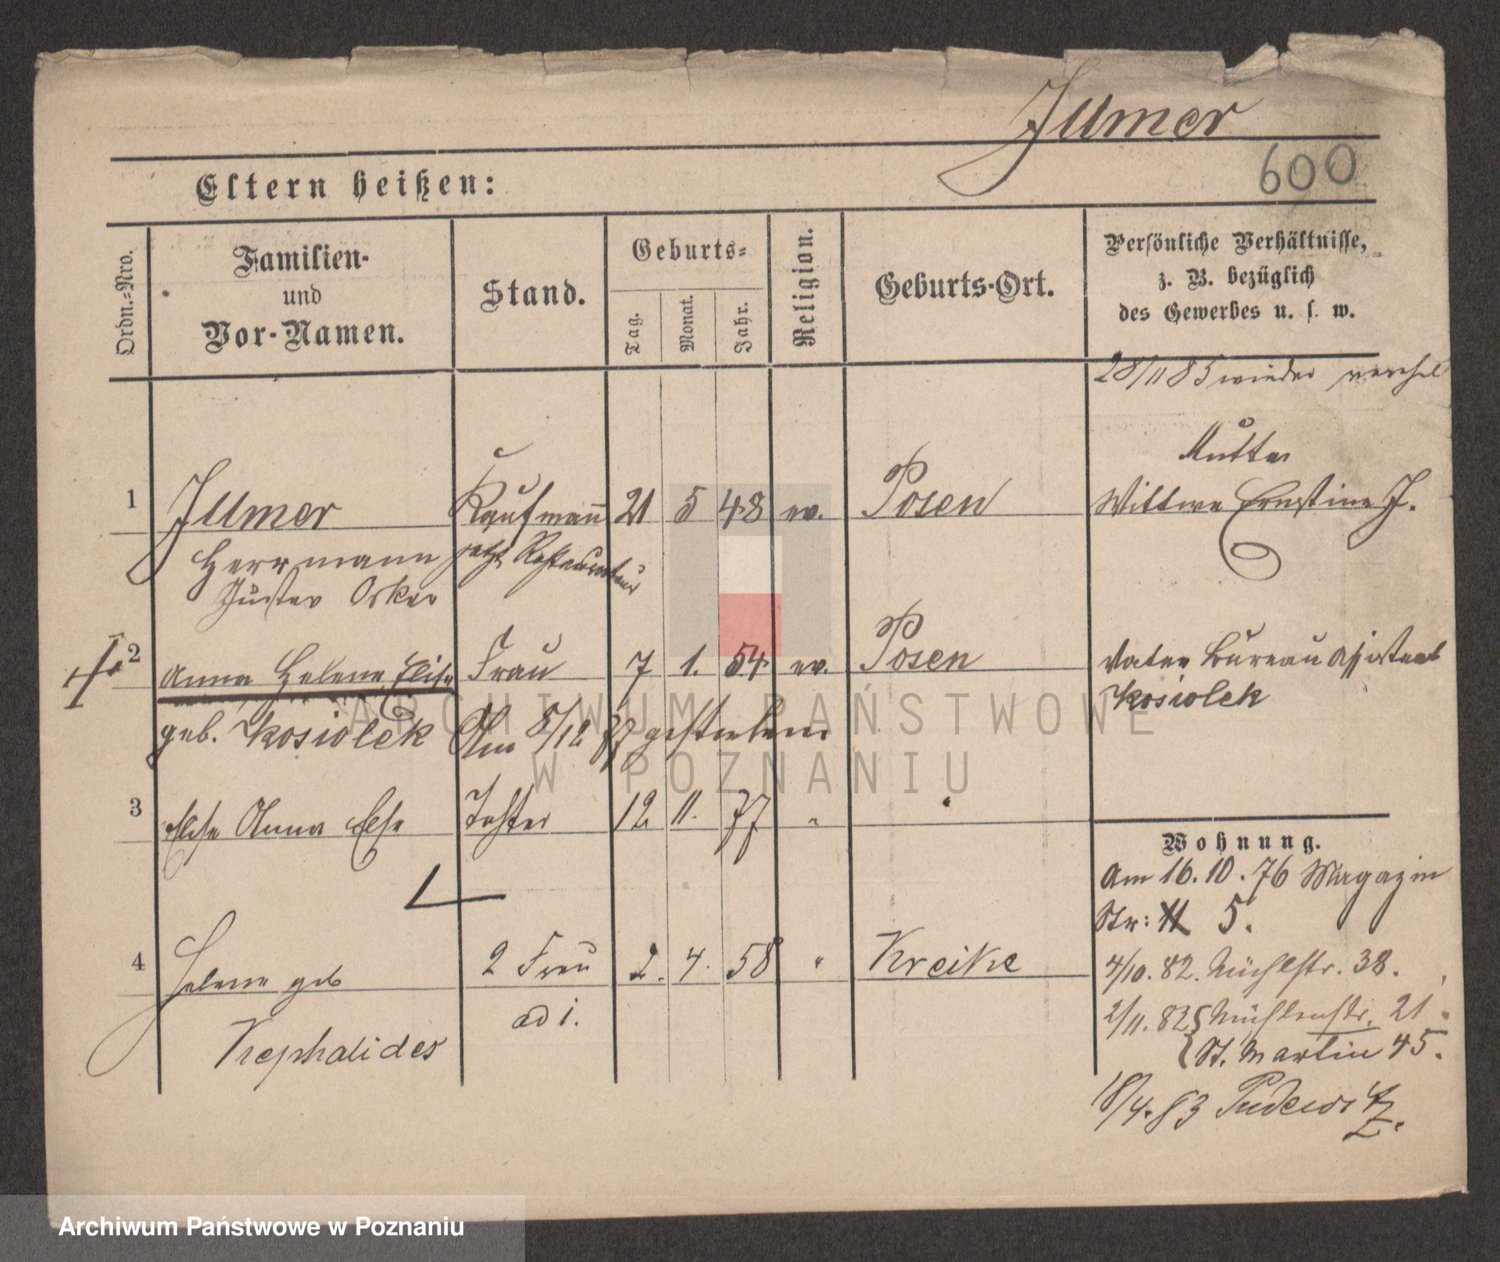 Illmer
600
Eltern heißen:
Ordn.-Nro.
Familien-
und
Vor-Namen.
Stand.
Geburts-
Tag.
Monat.
Jahr.
Religion.
Geburts-Ort.
Persönliche Verhältnisse,
z. B. bezüglich
des Gewerbes u. s. w.
28/11 85 wieder
Mutter
1 Illmer Kaufmann 21 5 48 ev. Posen Wittwe Ernstine J.
Herrmann jetzt Restaurateur
Gustav Oskar
2 Anna Helene Elise Frau 7 1. 54 ev. Posen Vater Büreau Assistent
Kosiolek
geb. Kosiolek Am 5/12 77 gestorben
3 Elise Anna Else Tochter 12 11. 77 "
Wohnung.
Am 16.10.76 Magazin
Str: 11 5.
4 Helene geb 2 Frau 2. 4. 58 " Kreike
4/10. 82. Mühlstr. 38.
ad 1.
2/11. 82 Mühlenstr. 21.
Krephalides
St. Martin 45.
18/4. 83 Pudewitz.
ARCHIWUM PAŃSTWOWE
W POZNANIU
Archiwum Państwowe w Poznaniu